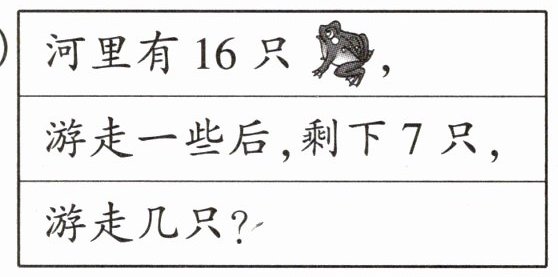 河里有 16 只 ,
游走一些后,剩下 7 只,
游走几只?